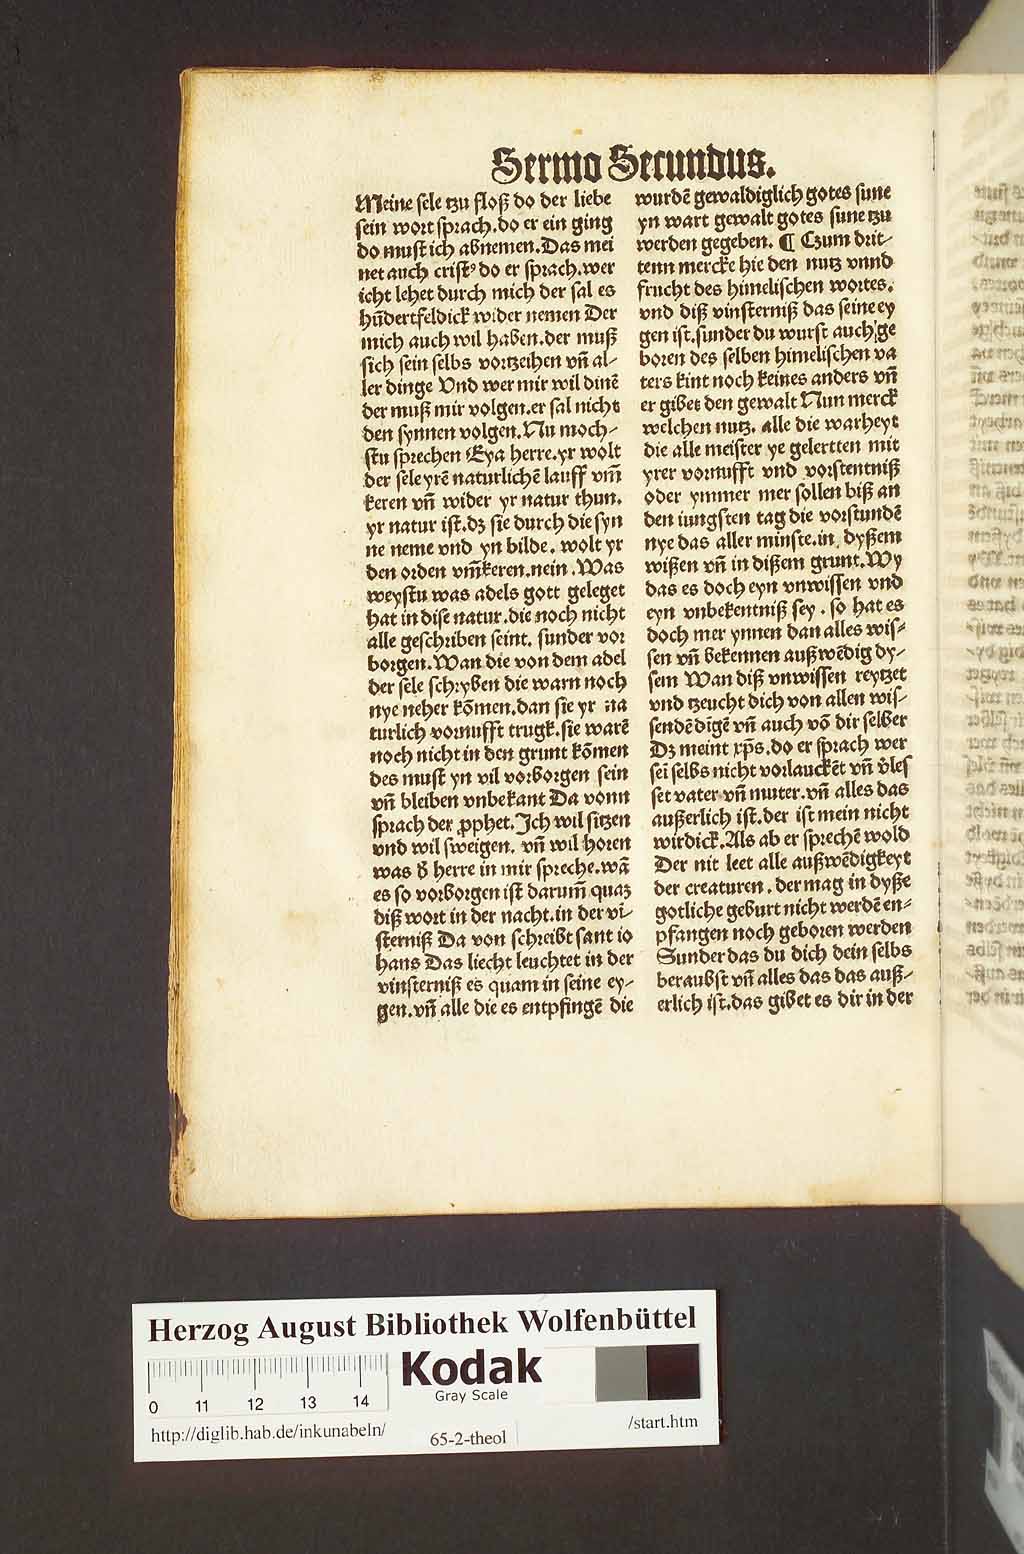 Sermo Secundus.
Meine sele tzu floß do der liebe
sein wort sprach.do er ein ging
do must ich abnemen.Das mei
net auch cristꝰ do er sprach.wer
icht lehet durch mich der sal es
hūdertfeldick wider nemen Der
mich auch wil haben.der muß
sich sein selbs vortzeihen vn̄ al-
ler dinge Vnd wer mir wil dinē
der muß mir volgen.er sal nicht
den synnen volgen.Nu moch-
stu sprechen Eya herre.yr wolt
der sele yrē naturlichē lauff vm̄
keren vn̄ wider yr natur thun.
yr natur ist.dz sie durch die syn
ne neme vnd yn bilde. wolt yr
den orden vm̄keren.nein.Was
weystu was adels gott geleget
hat in dise natur.die noch nicht
alle geschriben seint. sunder vor
borgen.Wan die von dem adel
der sele schryben die warn noch
nye neher kōmen.dan sie yr na
turlich vornufft trugk.sie warē
noch nicht in den grunt kōmen
des must yn vil vorborgen sein
vn̄ bleiben vnbekant Da vonn
sprach der ꝓphet.Ich wil sitzen
vnd wil sweigen. vn̄ wil horen
was d̕ herre in mir spreche.wā
es so vorborgen ist darum̄ quaz
diß wort in der nacht.in der vi-
sterniß Da von schreibt sant io
hans Das liecht leuchtet in der
vinsterniß es quam in seine ey-
gen.vn̄ alle die es entpfingē die
wurdē gewaldiglich gotes sune
yn wart gewalt gotes sune tzu
werden gegeben. ¶ Czum drit-
tenn mercke hie den nutz vnnd
frucht des himelischen wortes.
vnd diß vinsterniß das seine ey
gen ist.sunder du wurst auch ge
boren des selben himelischen va
ters kint noch keines anders vn̄
er gibet den gewalt Nun merck
welchen nutz. alle die warheyt
die alle meister ye gelertten mit
yrer vornufft vnd vorstentniß
oder ymmer mer sollen biß an
den iungsten tag die vorstundē
nye das aller minste.in dyßem
wißen vn̄ in dißem grunt.Wy
das es doch eyn vnwissen vnd
eyn vnbekentniß sey . so hat es
doch mer ynnen dan alles wis-
sen vn̄ bekennen außwēdig dy-
sem Wan diß vnwissen reytzet
vnd tzeucht dich von allen wis-
sendē digē vn̄ auch vō dir selber
Dz meint xp̄s.do er sprach wer
sei selbs nicht vorlauckēt vn̄ v̕les
set vater vn̄ muter.vn̄ alles das
außerlich ist.der ist mein nicht
wirdick.Als ab er sprechē wold
Der nit leet alle außwēdigkeyt
der creaturen.der mag in dyße
gotliche geburt nicht werdē en-
pfangen noch geboren werden
Sunder das du dich dein selbs
beraubst vn̄ alles das das auß-
erlich ist.das gibet es dir in der
Herzog August Bibliothek Wolfenbüttel
Kodak
Gray Scale
0 11 12 13 14
http://diglib.hab.de/inkunabeln/
65-2-theol
/start.htm